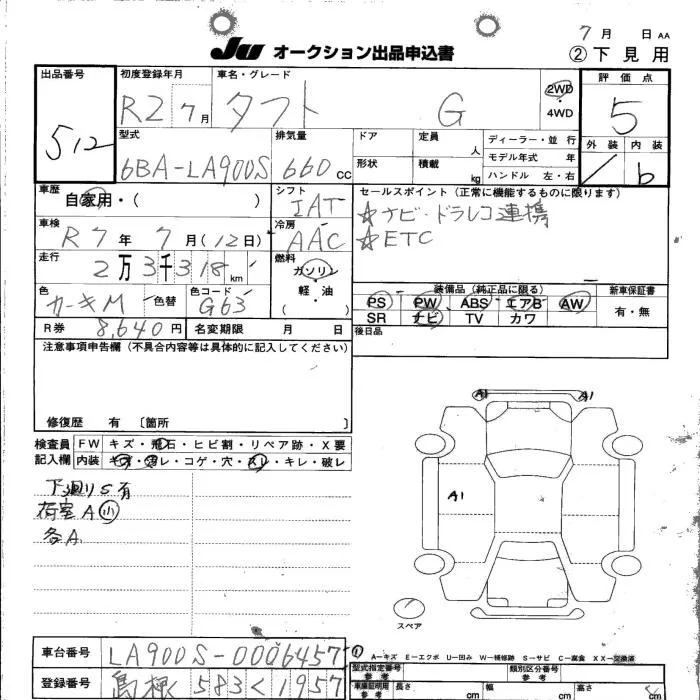 7月 日 AA
JU オークション出品申込書 ②下見用
出品番号 512
初度登録年月 R2 7月
車名・グレード タフト G
2WD・4WD
評価点 5
外装 内装 b
型式 6BA-LA900S
排気量 660 cc
ドア 形状
定員 人
積載 kg
ディーラー・並行
モデル年式 年
ハンドル 左・右
車歴 自家用・( )
シフト IAT
セールスポイント(正常に機能するものに限ります)
☆ナビ・ドラレコ連携
☆ETC
車検 R7年7月(12日)
冷房 AAC
走行 2万3千318km
燃料 ガソリン・軽・油
色 カーキM 色替
色コード G63
装備品(純正品に限る)
PS PW ABS エアB AW
SR ナビ TV カワ
新車保証書 有・無
R券 8,640円
名変期限 月 日
後日品
注意事項申告欄(不具合内容等は具体的に記入してください)
修復歴 有 〔箇所 〕
検査員記入欄
FW キズ・飛石・ヒビ割・リペア跡・X要
内装 キズ・汚レ・コゲ・穴・スレ・キレ・破レ
下廻りS有
荷室A小
各A
A1 A1
A1
スペア
車台番号 LA900S-0006457
登録番号 島根 583 く 1957
① A－キズ E－エクボ U－凹み W－補修跡 S－サビ C－腐食 XX－交換済
型式指定番号 参考
類別区分番号 参考
車庫証明用 参考 長さ cm 幅 cm 高さ cm